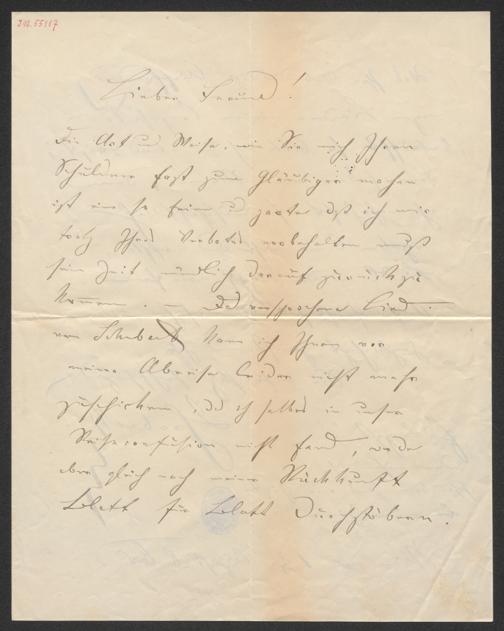 I.N. 55117
Lieber Freund!
Die Art u Weise, wie Sie mich Ihren
Schuldner fast zum Gläubiger machen
ist eine so feine u zarte, dß ich mir
trotz Ihres Verbotes vorbehalten muß
seiner Zeit mündlich darauf zurückzu
kommen. – Das versprochene Lied
von Schubert kann ich Ihnen vor
meiner Abreise leider nicht mehr
zuschicken, da ich selbes in unserer
Reiseconfusion nicht fand, werde
aber gleich nach meiner Rückkunft
Blatt für Blatt durchstöbern.